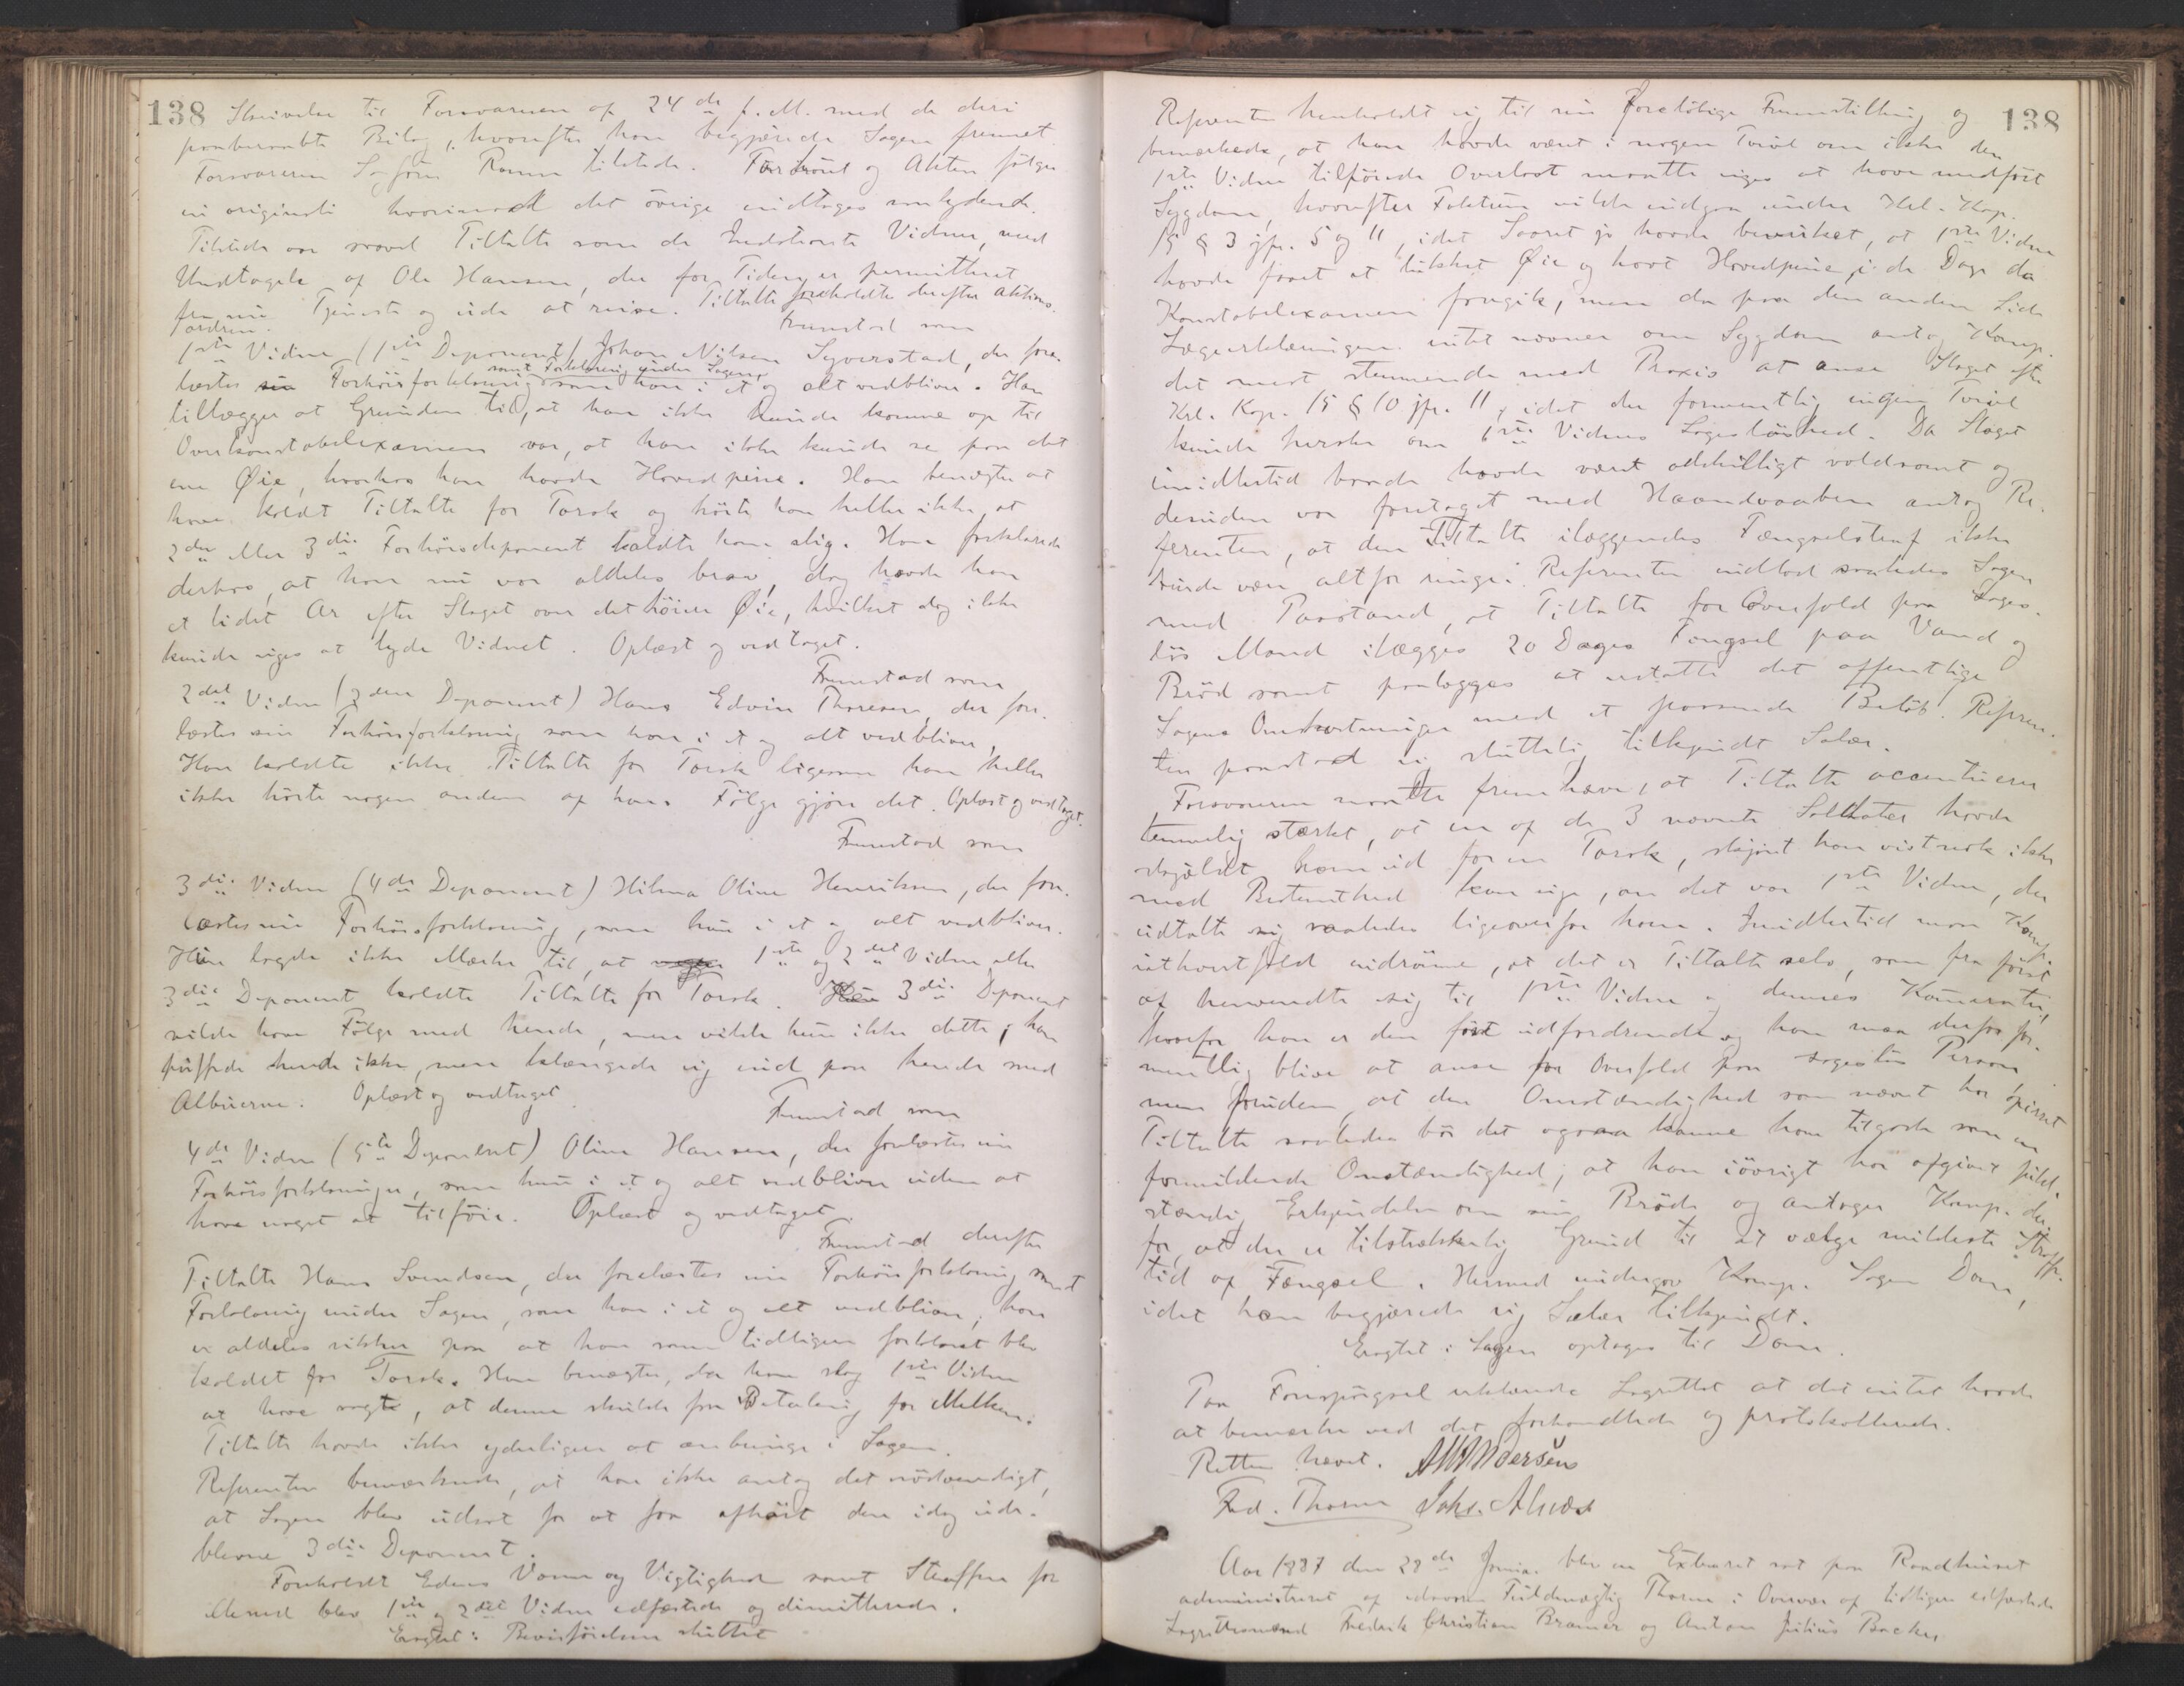 138
Skrivelse til Forsvareren af 24de f. M. med de deri
paaberaabte Bilag, hvorefter han begjærede Sagen fremmet.
Forsvareren Sagfører Ramm tilstede. Forhöret og Akten fölger
in originali hvorimod det övrige indtages saalydende.
Tilstede var saavel Tiltalte som de Indstevnte Vidner, med
Undtagelse af Ole Hansen, der for Tiden er permitteret
fra sin Tjeneste og ude at reise. Tiltalte foreholdtes derefter Aktions-
ordren. Fremstod som
1ste Vidne (1ste Deponent) Johan Nilsen Syverstad, der fore-
samt Forklaring under Sagen,
læstes sin Forhörsforklaring som han i et og alt vedbliver. Han
tillægger at Grunden til, at han ikke kunde komme op til
Overkonstabelexamen var, at han ikke kunde se paa det
ene Øie, hvorhos han havde Hovedpine. Han benægter at
have kaldt Tiltalte for Torsk og hörte han heller ikke, at
2den eller 3die Forhörsdeponent kaldte ham slig. Han forklarede
derhos, at han nu var aldeles brav, dog havde han
et lidet Ar efter Slaget over det höire Øie, hvilket dog ikke
kunde siges at lyde Vidnet. Oplæst og vedtaget.
Fremstod som
2det Vidne (2den Deponent) Hans Edvin Thoresen, der fore-
læstes sin Forhörsforklaring som han i et og alt vedbliver,
Han kaldte ikke Tiltalte for Torsk ligesom han heller
ikke hörte nogen anden af hans Fölge gjöre det. Oplæst og vedtaget.
Fremstod som
3die Vidne (4de Deponent) Hilma Oline Henriksen, der fore-
læstes sin Forhörsforklaring, som hun i et og alt vedbliver.
Hun lagde ikke Mærke til, at 1ste og 2det Vidne eller
3die Deponent kaldte Tiltalte for Torsk. 3die Deponent
vilde have Fölge med hende, men vilde hun ikke dette; han
puffede hende ikke, men trængede sig ind paa hende med
Albuerne. Oplæst og vedtaget
Fremstod som
4de Vidne (5te Deponent) Oline Hansen, der forelæstes sin
Forhörsforklaringer, som hun i et og alt vedbliver uden at
have noget at tilföie. Oplæst og vedtaget.
Fremstod derefter
Tiltalte Hans Svendsen, der forelæstes sin Forhörsforklaring samt
Forklaring under Sagen, som han i et og alt vedbliver, han
er aldeles sikker paa at han som tidligere forklaret blev
kaldet for Torsk. Han benægter, da han slog 1ste Vidne
at have sagt, at denne skulde faa Betaling for Melken.
Tiltalte havde ikke yderligere at anbringe i Sagen.
Referenten bemærkede, at han ikke antog det nödvendigt,
at Sagen blev udsat for at faa afhört den idag ude-
blevne 3die Deponent.
Foreholdt Edens Vaner og Vigtighed samt Straffen for
Mened blev 1ste og 2det Vidne edfæstede og dimitterede.
Eragtet: Bevisförelsen sluttet
138
Referenten henholdt sig til sin foreløbige Fremstilling og
bemærkede, at han havde været i nogen Tvivl om ikke den
1ste Vidne tilföiede Overlast maatte siges at have medfört
Sygdom, hvorefter Faktum vilde indgaa under Krl. Kap.
15 § 3 jfr. 5 og 11, idet Saaret jo havde bevirket, at 1ste Vidne
havde faaet et lukket Øie og havt Hovedpine i de Dage da
Konstabelexamen foregik, men da paa den anden Side
Lægeerklæringen intet nævner om Sygdom antog Komp.
det mest stemmende med Praxis at anse Slaget efter
Krl. Kap. 15 § 10 jfr. 11, idet der formentlig ingen Tvivl
kunde herske om 1ste Vidnes Sageslöshed. Da Slaget
imidlertid havde været adskilligt voldsomt og
desuden var foretaget med Haandvaaben antog Re-
ferenten, at den Tiltalte ilæggendes Fængselstraf ikke
burde være altfor ringe. Referenten indlod saaledes Sagen
med Paastand, at Tiltalte for Overfald paa sages-
lös Mand ilægges 20 Dages Fængsel paa Vand og
Bröd samt paalægges at erstatte det offentlige
Sagens Omkostninger med et passende Belöb. Referen-
ten paastod sig sluttelig tilkjendt Salær.
Forsvareren maatte fremhæve, at Tiltalte accentuerer
temmelig stærkt, at en af de 3 nævnte Soldater havde
skjældt ham ud for en Torsk, skjönt han vistnok ikke
med Bestemthed kan sige, om det var 1ste Vidne, der
udtalte sig saaledes ligeoverfor ham. Imidlertid maa Komp.
iethvertfald indrömme, at det er Tiltalte selv, som fra först
af henvendte sig til 1ste Vidne og dennes Kamerater,
hvorfor han er den först udfordrende og han maa derfor for-
mentlig blive at anse for Overfald paa sageslös Person
men foruden, at den Omstændighed som nævnt har opirret
Tiltalte saaledes bör det ogsaa komme ham tilgode som en
formildende Omstændighed; at han iövrigt har afgivet fuld-
stændig Erkjendelse om sin Bröde og antager Komp. der-
for, at der er tilstrækkelig Grund til at vælge mildeste Straffe-
tid af Fængsel. Hermed undergav Komp. Sagen Dom,
idet han begjærede sig Salær tilkjendt.
Eragtet: Sagen optages til Dom.
Paa Forespörgsel erklærede Lagrettet at det intet havde
at bemærke ved det forhandlede og protokollerede.
Retten hævet. Andersen
Fred. Thorne Johs. Alnæs
Aar 1887 den 28de Juni blev en Extraret sat paa Raadhuset
administreret af edsvoren Fuldmægtig Thorne i Overvær af tidligere edfæstede
Lagrettesmænd Frederik Christian Bramer og Anton Julius Backer